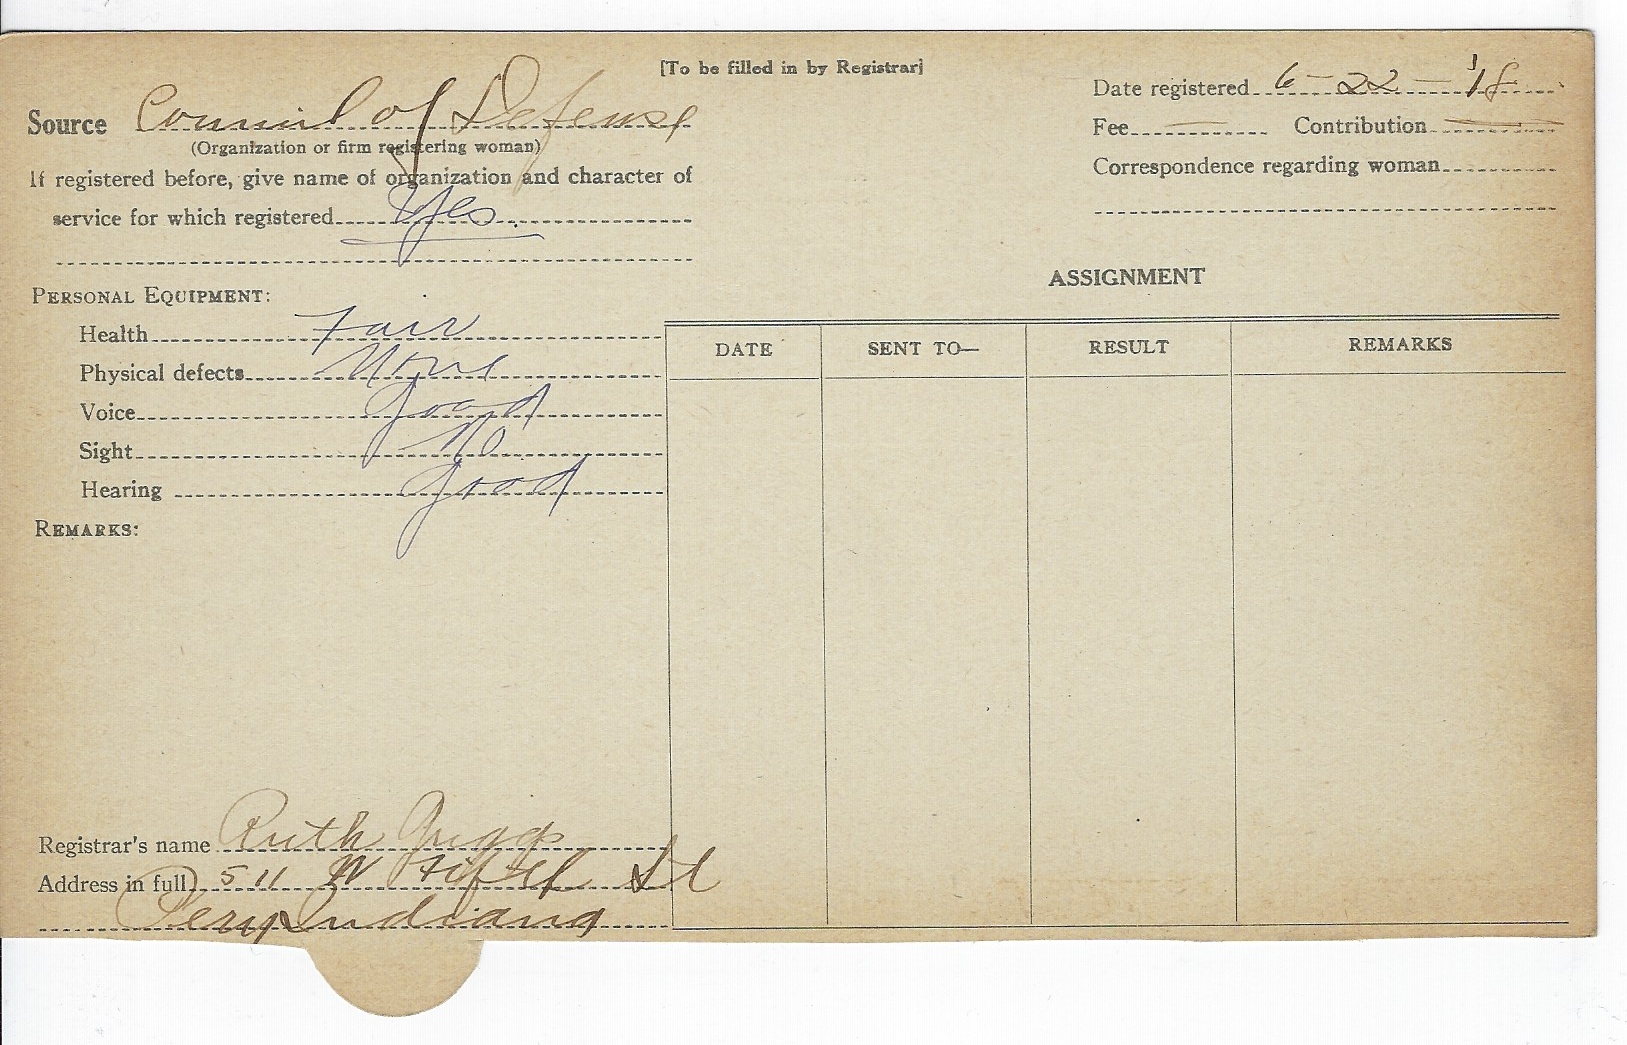 [To be filled in by Registrar]
Source Council of Defense
(Organization or firm registering woman)
If registered before, give name of organization and character of
service for which registered Yes.
Date registered 6-22-'18
Fee Contribution
Correspondence regarding woman
PERSONAL EQUIPMENT:
Health Fair
Physical defects None
Voice Good
Sight No
Hearing Good
REMARKS:
ASSIGNMENT
DATE SENT TO— RESULT REMARKS
Registrar's name Ruth Griggs
Address in full 511 W Fifth St
Peru Indiana